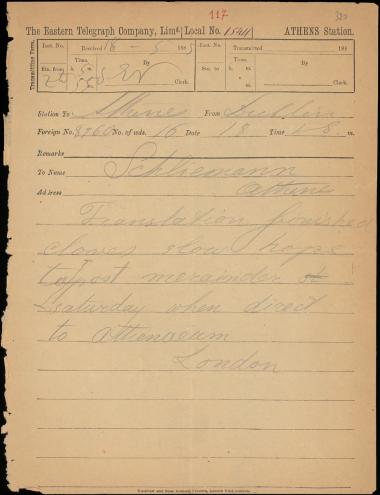 117
The Eastern Telegraph Company, Limd. Local No. 1544 ATHENS Station.
Transmitting Form.
Inst. No. Received 18 - 5 1885 Inst. No. Transmitted 188
Time. By Time. By
Stn. from h. m. Clerk. Stn. to h. m. Clerk.
Station To Athines From Dublin
Foreign No. 8960 No. of wds. 16 Date 18 Time m.
Remarks
To Name Schliemann
Address Athine
Translation finished
cloves slow hope
to post merainder
Saturday when direct
to Athenaeum
London